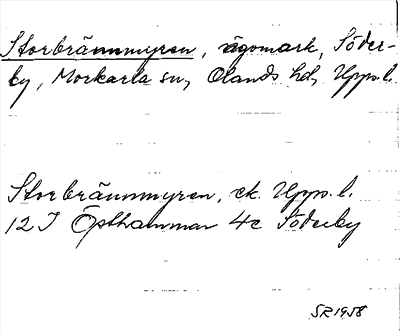 Storbrännmyren, ägomark, Söder-
by, Morkarla sn, Olands hd, Upps.l.
Storbrännmyren, ek. Upps.l.
12 I Östhammar 4c Söderby
SR 1958